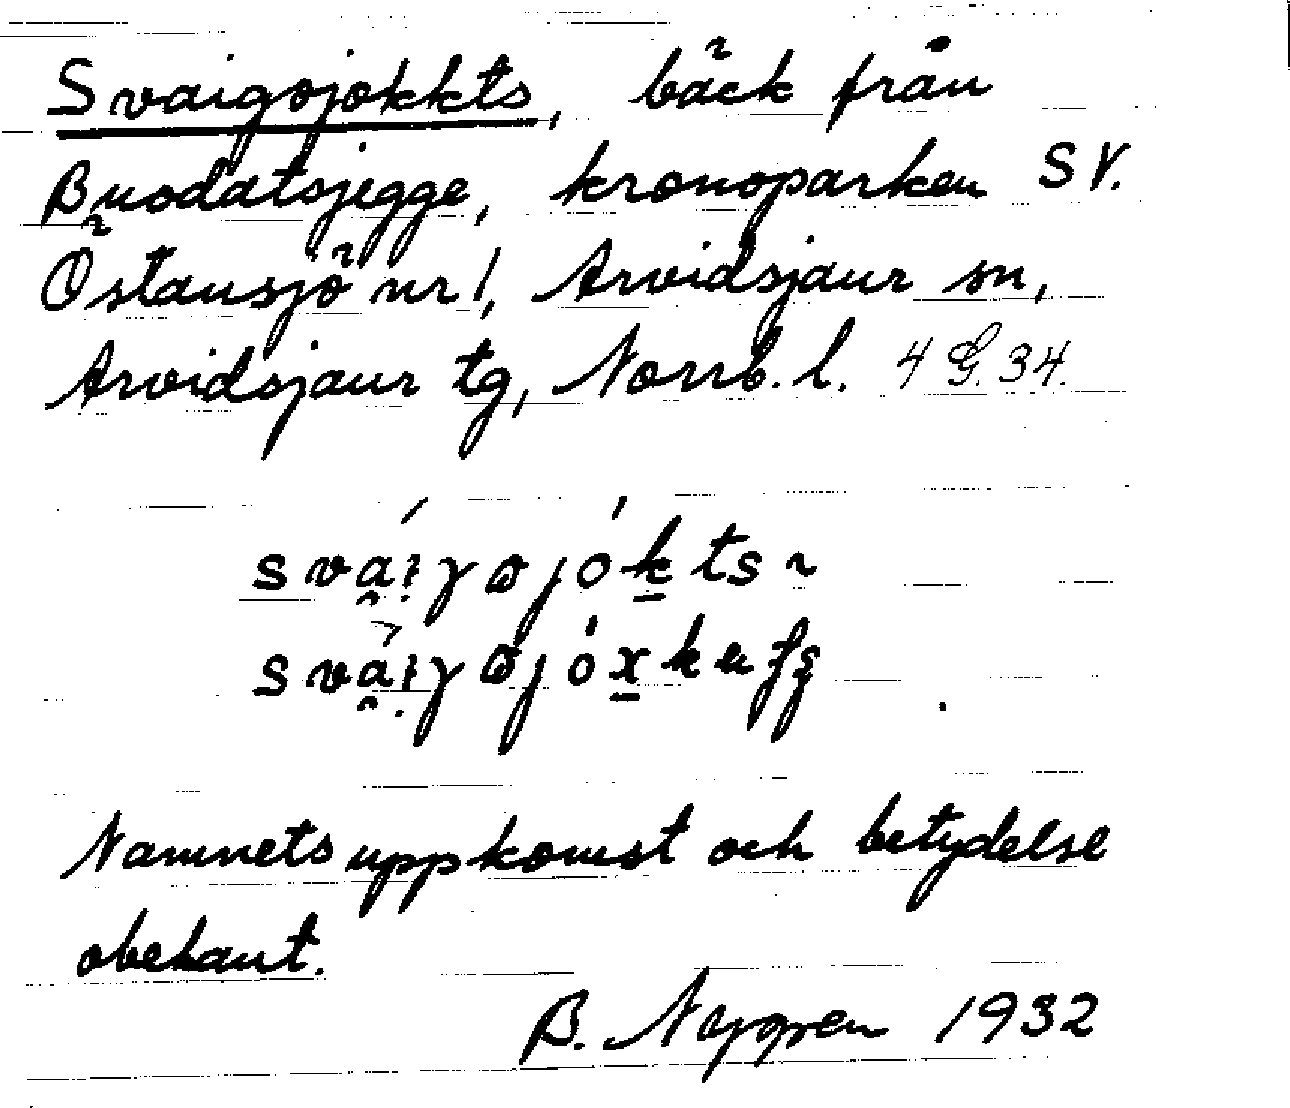 Svaigojokkts, bäck från
Buodatsjegge, kronoparken SV.
Östansjö nr 1, Arvidsjaur sn,
Arvidsjaur tg, Norrb. l. 4 G. 34.
Namnets uppkomst och betydelse
obekant.
B. Nygren 1932